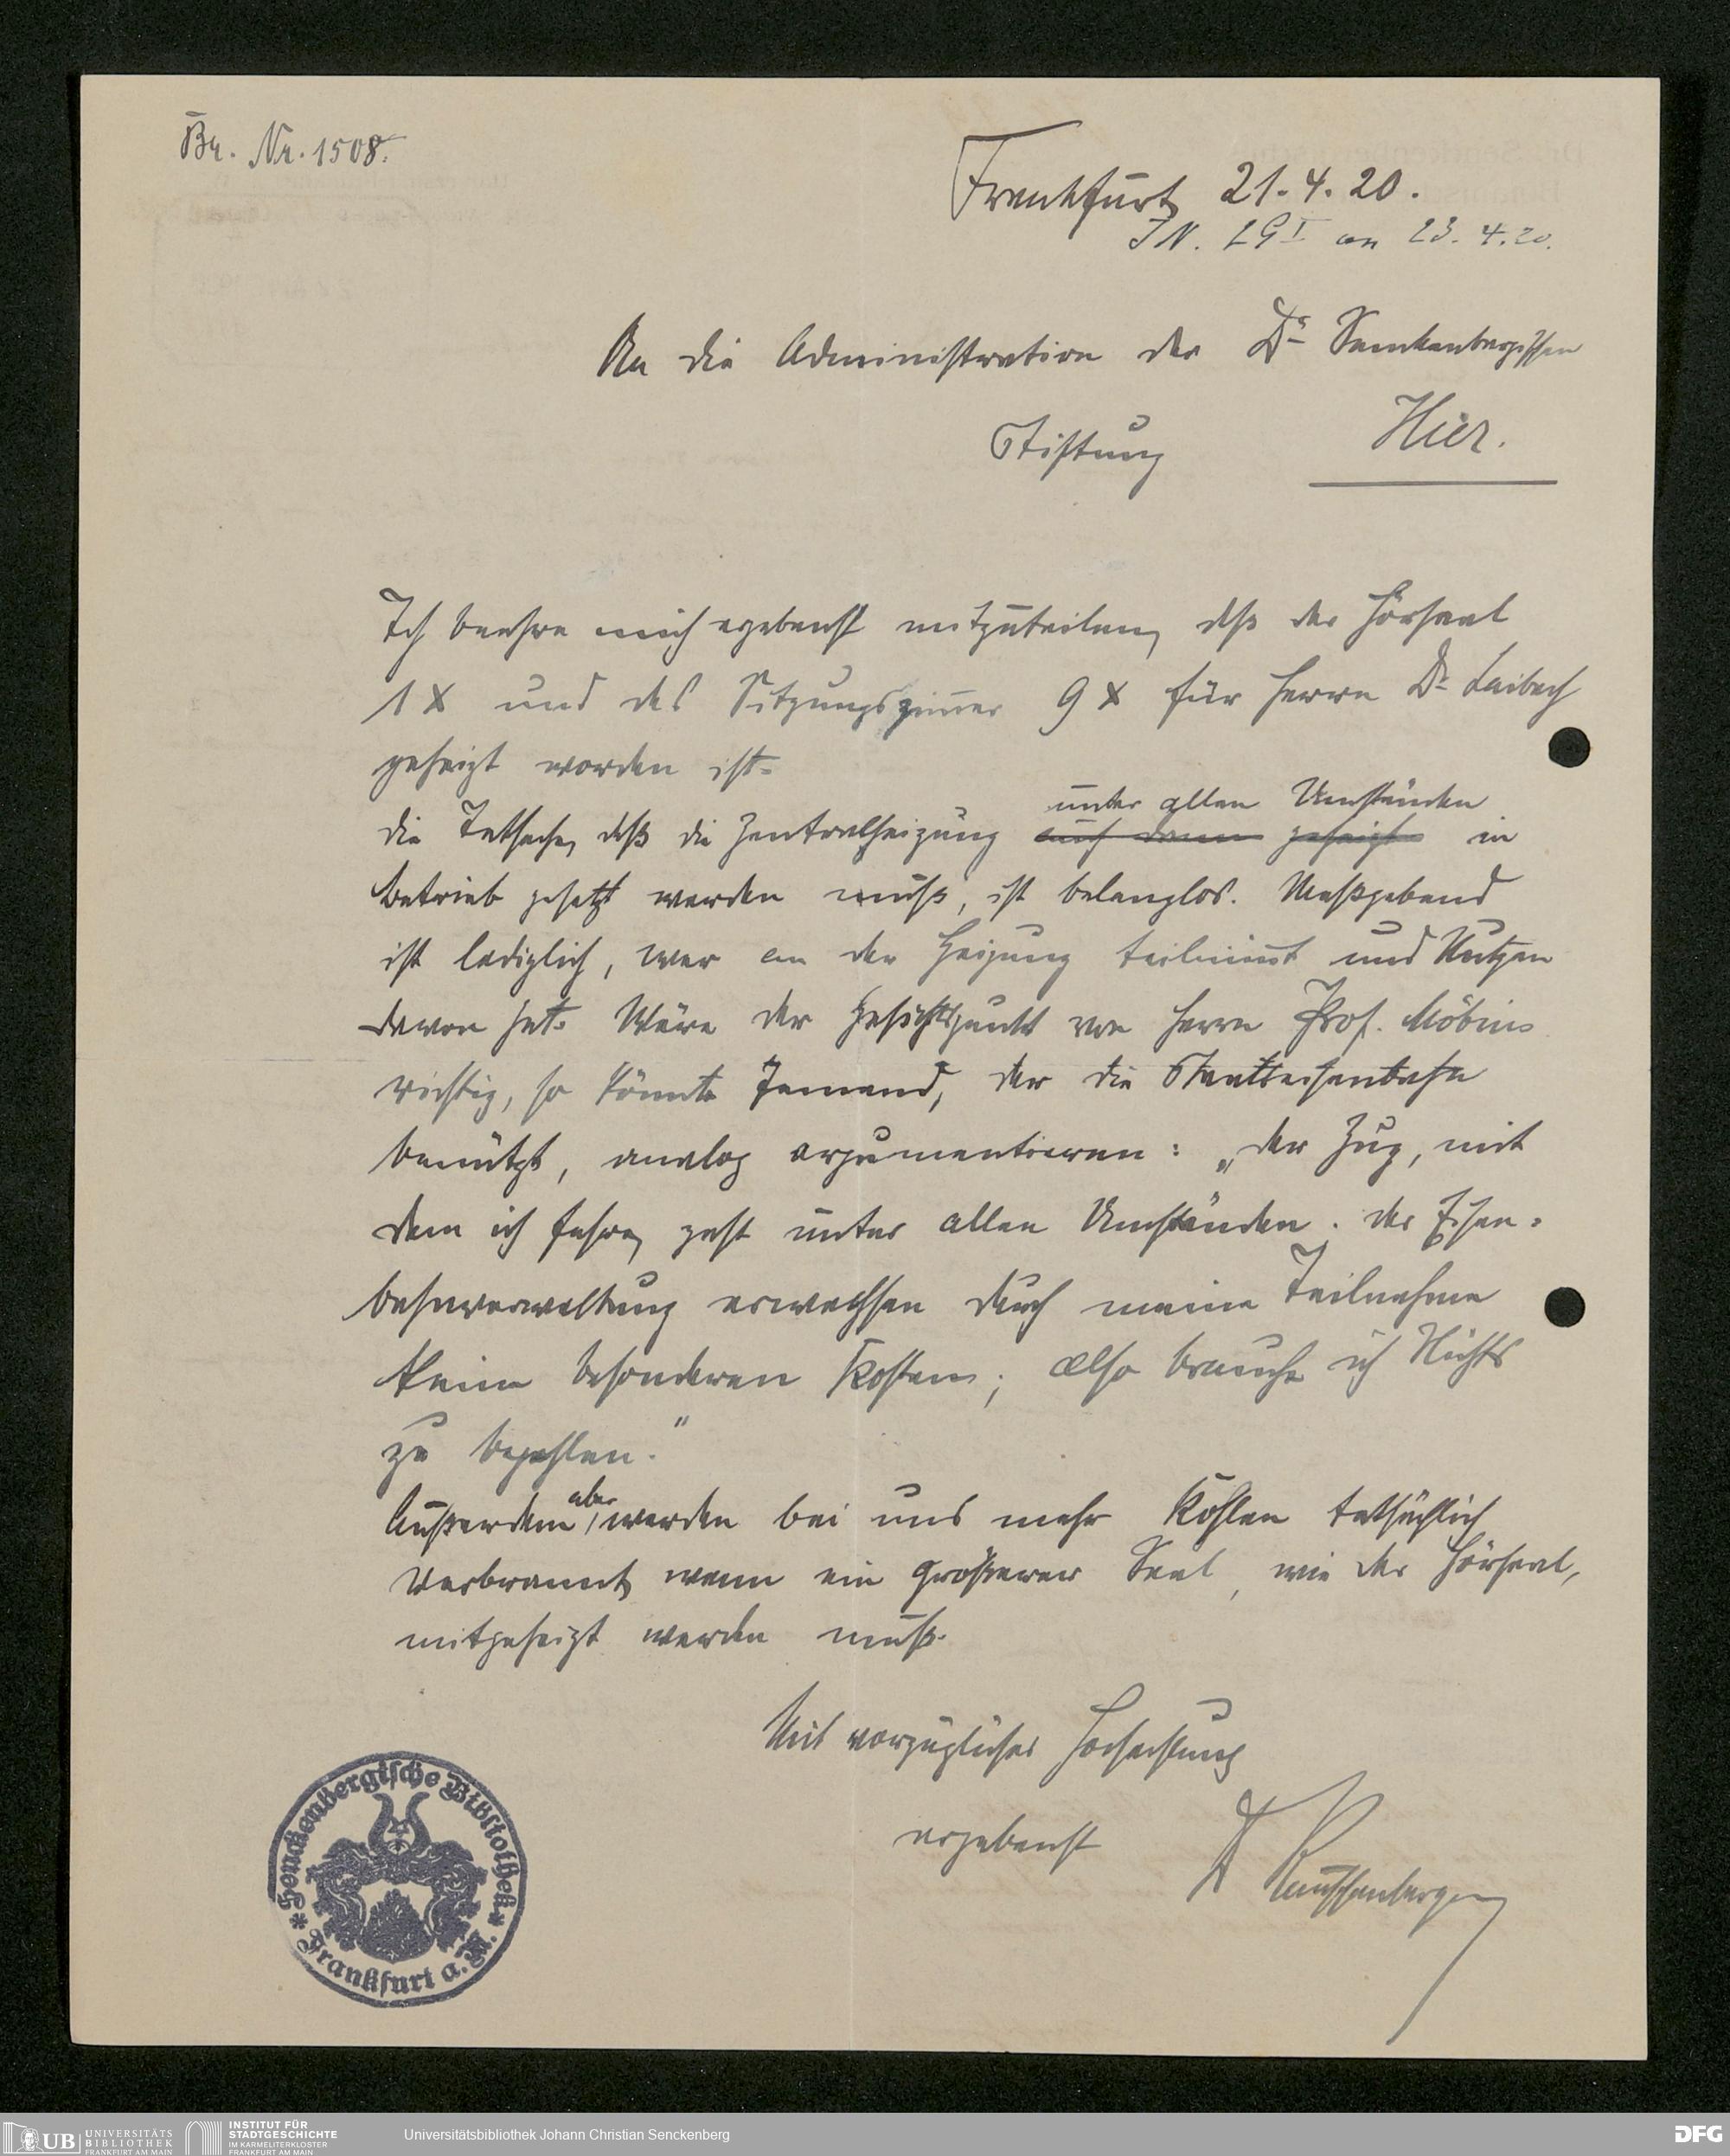 Br. Nr. 1508.
Frankfurt 21.4.20.
an 23.4.20.
An die Administration der Dr Senckenbergischen
Stiftung Hier.
Ich beehre mich ergebenst mitzuteilen, daß der Hörsaal
1 X und das Sitzungszimmer 9 X für Herrn Dr Laibach
geheizt worden ist.
unter allen Umständen
Die Tatsache, daß die Zentralheizung auch dann geheizt in
Betrieb gesetzt werden muß, ist belanglos. Maßgebend
ist lediglich, wer an der Heizung teilnimmt und Nutzen
davon hat. Wäre der Gesichtspunkt von Herrn Prof. Möbius
richtig, so könnte Jemand, der die Staatseisenbahn
benützt, analog argumentieren: „Der Zug, mit
dem ich fahre, geht unter allen Umständen. Der Eisen-
bahnverwaltung erwachsen durch meine Teilnahme
keine besonderen Kosten; also brauche ich Nichts
zu bezahlen."
Außerdem aber werden bei uns mehr Kohlen tatsächlich
verbrannt, wenn ein größerer Saal, wie der Hörsaal,
mitgeheizt werden muß.
Mit vorzüglicher Hochachtung
ergebenst Dr Rauschenberger
Senckenbergische Bibliothek
Frankfurt a. M.
UB UNIVERSITÄTS
BIBLIOTHEK
FRANKFURT AM MAIN
INSTITUT FÜR
STADTGESCHICHTE
IM KARMELITERKLOSTER
FRANKFURT AM MAIN
Universitätsbibliothek Johann Christian Senckenberg
DFG